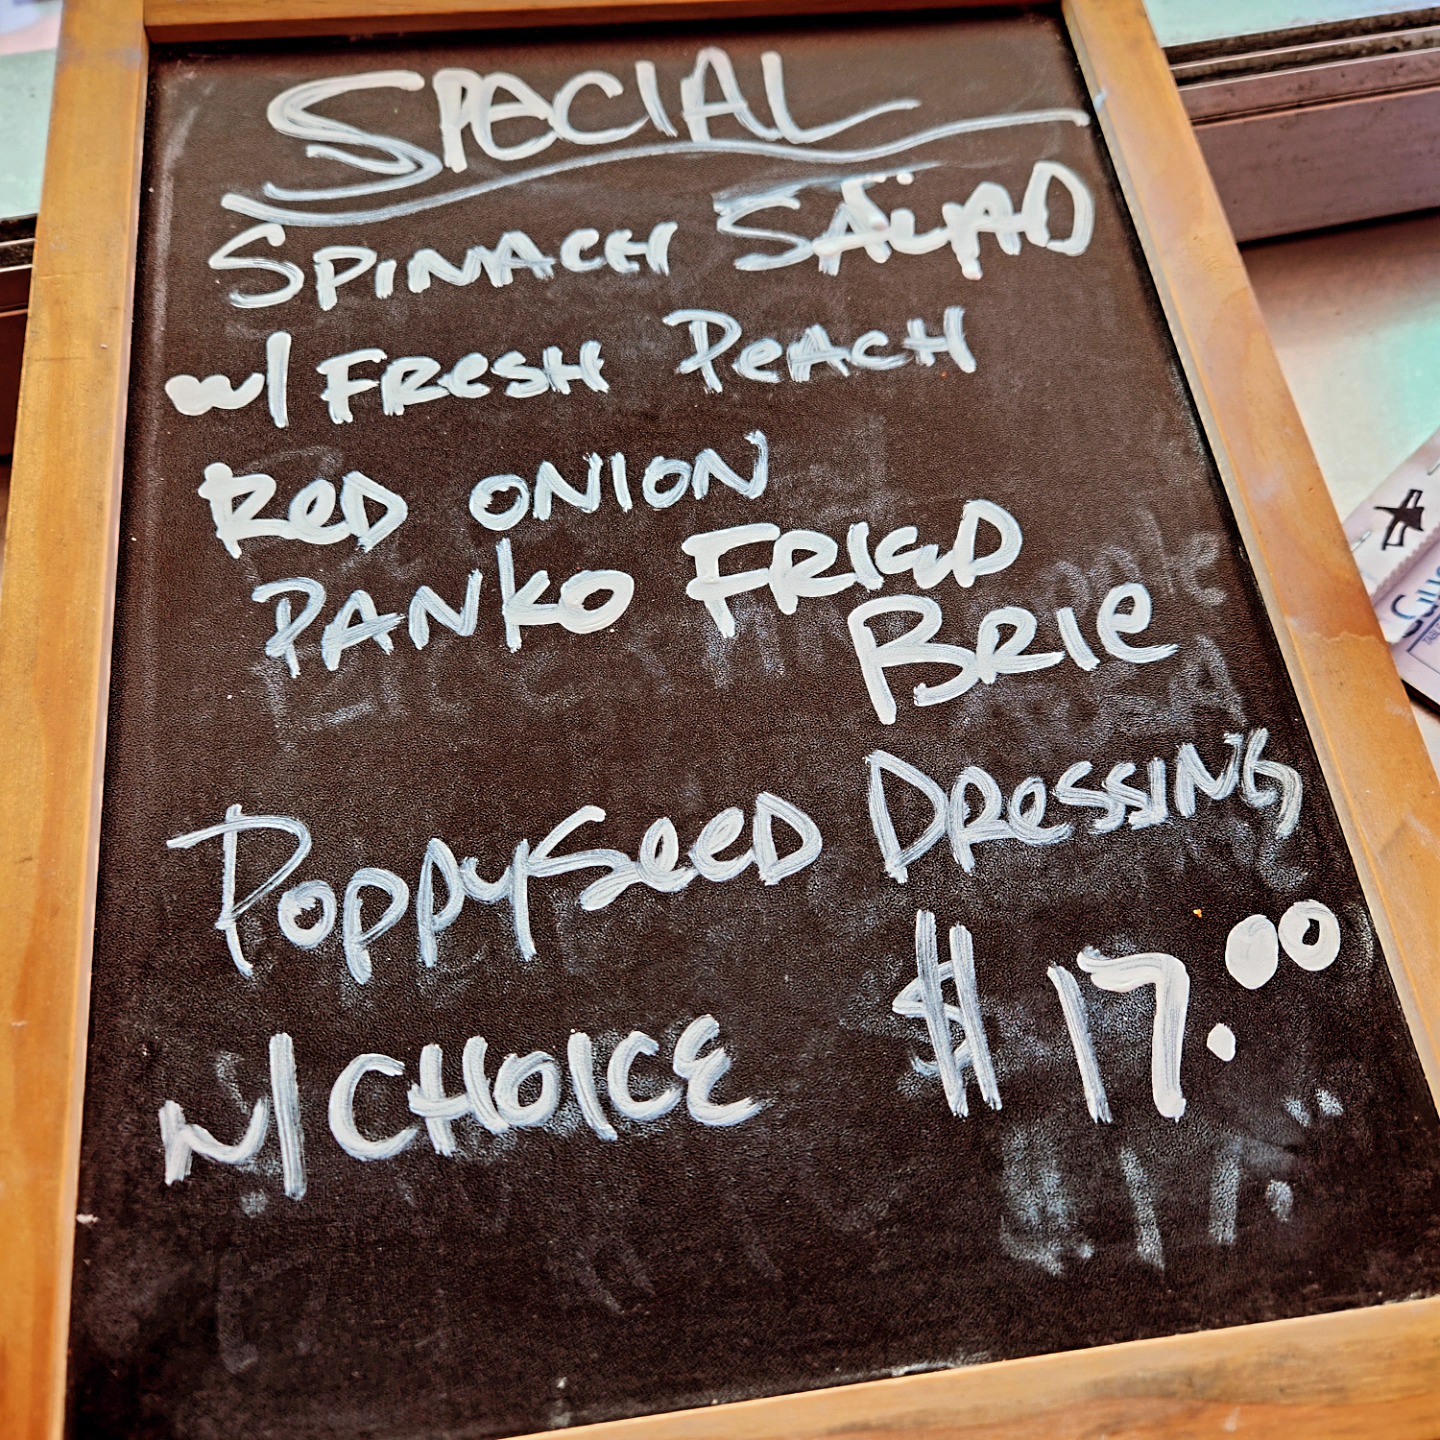 SPECIAL
SPINACH SALAD
w/ FRESH PEACH
RED ONION
PANKO FRIED
BRIE
POPPYSEED DRESSING
w/ CHOICE $17.00